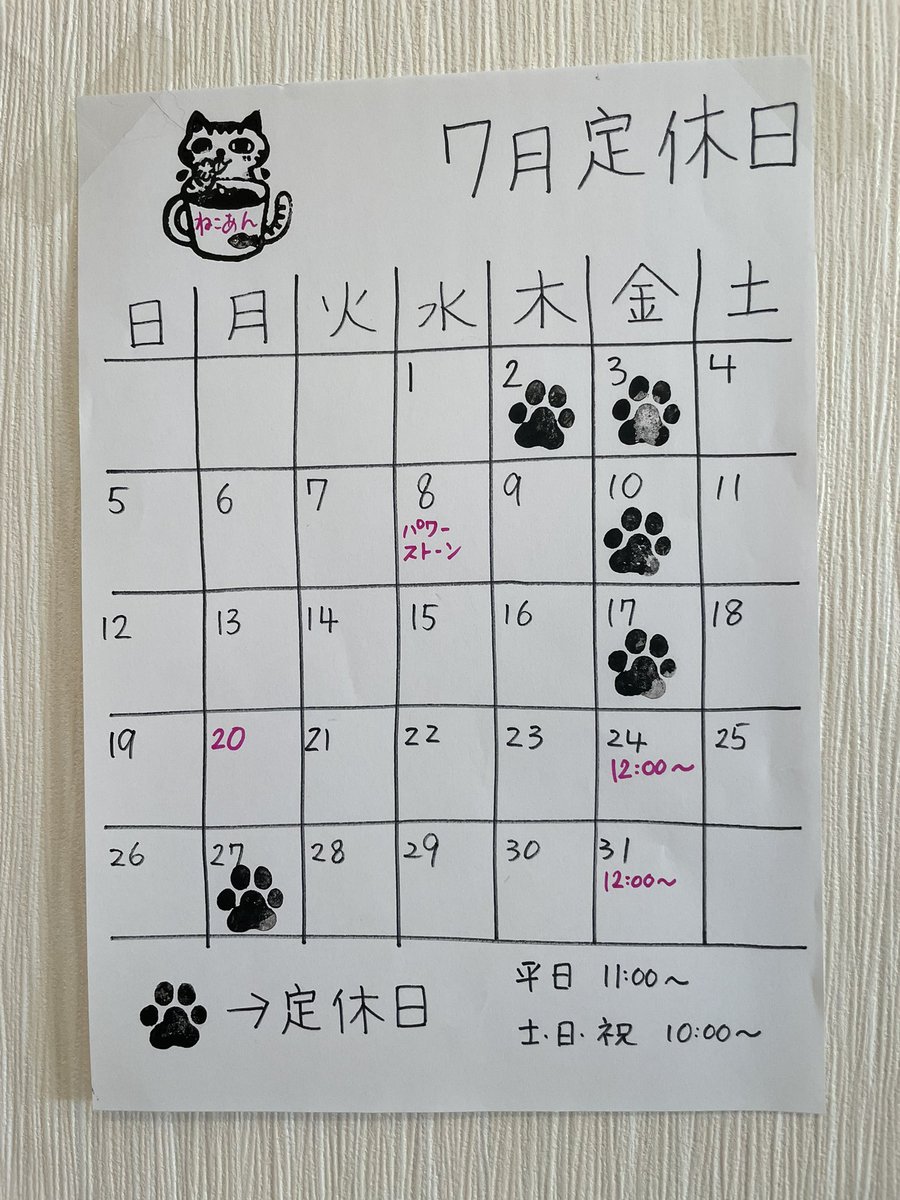 7月定休日
ねこあん
日 月 火 水 木 金 土
1 2 3 4
5 6 7 8 9 10 11
パワー
ストーン
12 13 14 15 16 17 18
19 20 21 22 23 24 25
12:00～
26 27 28 29 30 31
12:00～
→定休日
平日 11:00～
土・日・祝 10:00～